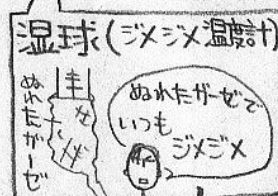 湿球(ジメジメ温度計)
ぬれたガーゼ
ぬれたガーゼで
いつも
ジメジメ